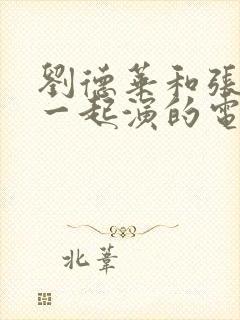 劉德華和張
一起演的電
北葦